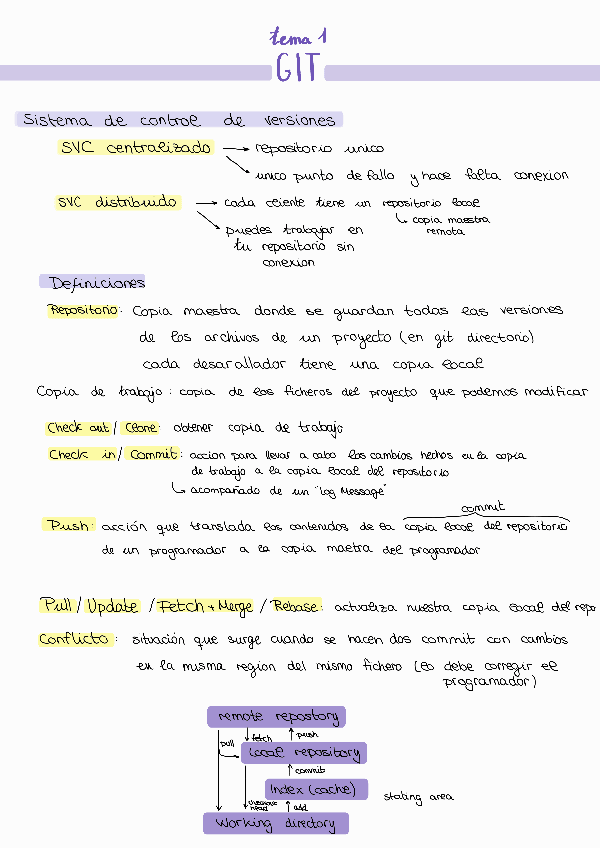 tema 1
GIT
Sistema de control de versiones
SVC centralizado → repositorio unico
unico punto de fallo y hace falta conexion
SVC distribuido → cada cliente tiene un repositorio local
↳ copia maestra
remota
puedes trabajar en
tu repositorio sin
conexion
Definiciones
Repositorio: Copia maestra donde se guardan todas las versiones
de los archivos de un proyecto (en git directorio)
cada desarallador tiene una copia local
Copia de trabajo: copia de los ficheros del proyecto que podemos modificar
Check out/ Clone: obtener copia de trabajo
Check in/ Commit: accion para llevar a cabo los cambios hechos en la copia
de trabajo a la copia local del repositorio
↳ acompañado de un "log Message"
commit
Push: acción que translada los contenidos de la copia local del repositorio
de un programador a la copia maetra del programador
Pull/ Update / Fetch + Merge / Rebase: actualiza nuestra copia local del repo
Conflicto: situación que surge cuando se hacen dos commit con cambios
en la misma region del mismo fichero (lo debe corregir el
programador)
remote repository
pull fetch push
local repository
commit
Index (cache)
stating area
checkout
head add
working directory